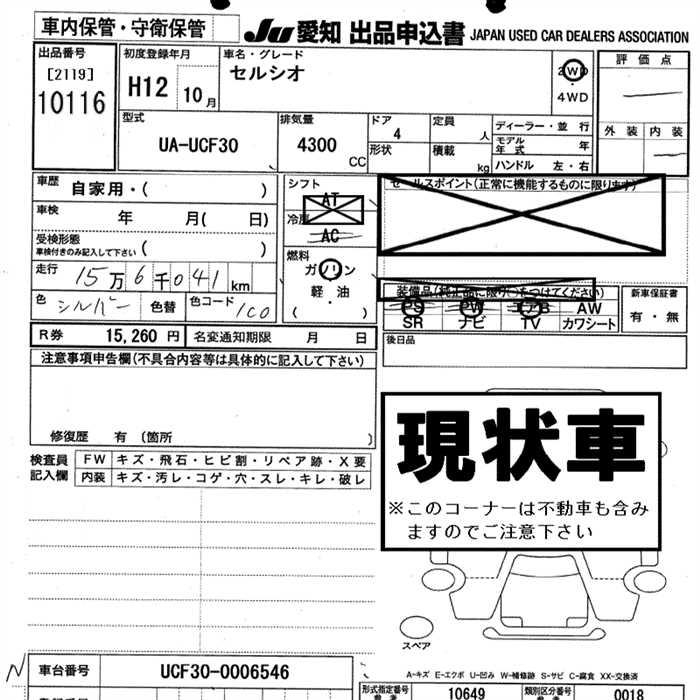 車内保管・守衛保管
JU 愛知 出品申込書 JAPAN USED CAR DEALERS ASSOCIATION
出品番号
[2119]
10116
初度登録年月
H12 10月
車名・グレード
セルシオ
2WD
・
4WD
評価点
外装 内装
型式
UA-UCF30
排気量
4300 CC
ドア
4
形状
定員
人
積載
kg
ディーラー・並行
モデル年式 年
ハンドル 左・右
車歴 自家用・( )
車検 年 月( 日)
受検形態
車検付きのみ記入して下さい ( )
走行 15万6千041km
色 シルバー 色替 色コード 1C0
シフト
AT
冷房
AC
燃料
ガソリン
軽・油
( )
セールスポイント(正常に機能するものに限ります)
装備品(純正品に限り○をつけてください)
PS PW エアB AW
SR ナビ TV カワシート
新車保証書
有・無
後日品
R券 15,260円 名変通知期限 月 日
注意事項申告欄(不具合内容等は具体的に記入して下さい)
修復歴 有 (箇所 )
検査員記入欄
FW キズ・飛石・ヒビ割・リペア跡・X要
内装 キズ・汚レ・コゲ・穴・スレ・キレ・破レ
現状車
※このコーナーは不動車も含み
ますのでご注意下さい
スペア
A-キズ E-エクボ U-凹み W-補修跡 S-サビ C-腐食 XX-交換済
車台番号 UCF30-0006546
型式指定番号 10649
類別区分番号 0018